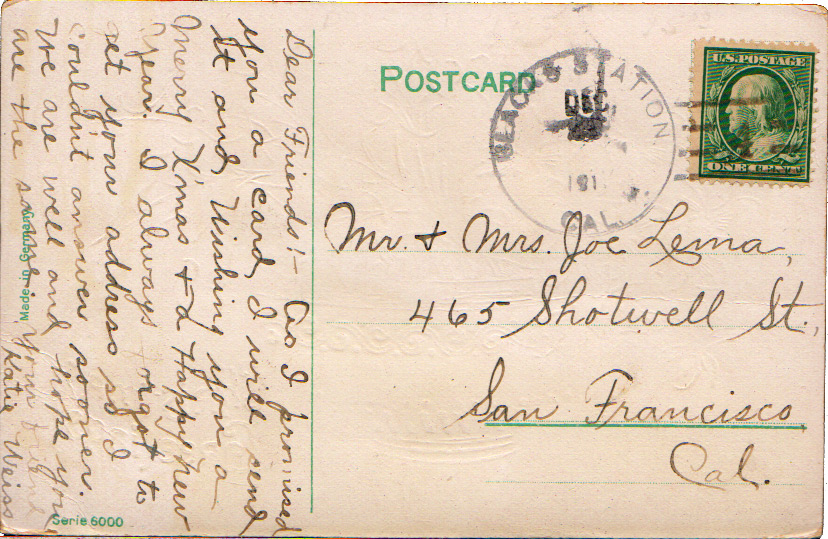 POSTCARD
BLACKS STATION
DEC
191
CAL.
U.S. POSTAGE
ONE CENT
Mr. & Mrs. Joe Lema,
465 Shotwell St.,
San Francisco
Cal.
Dear Friends! — As I promised
you a card, I will send
it and Wishing you a
Merry X'mas & a Happy New
Year. I always forgot to
get your address so I
couldn't answer sooner.
We are well and hope you
are the same. Your Friend
Katie Weiss
Made in Germany
Serie 6000